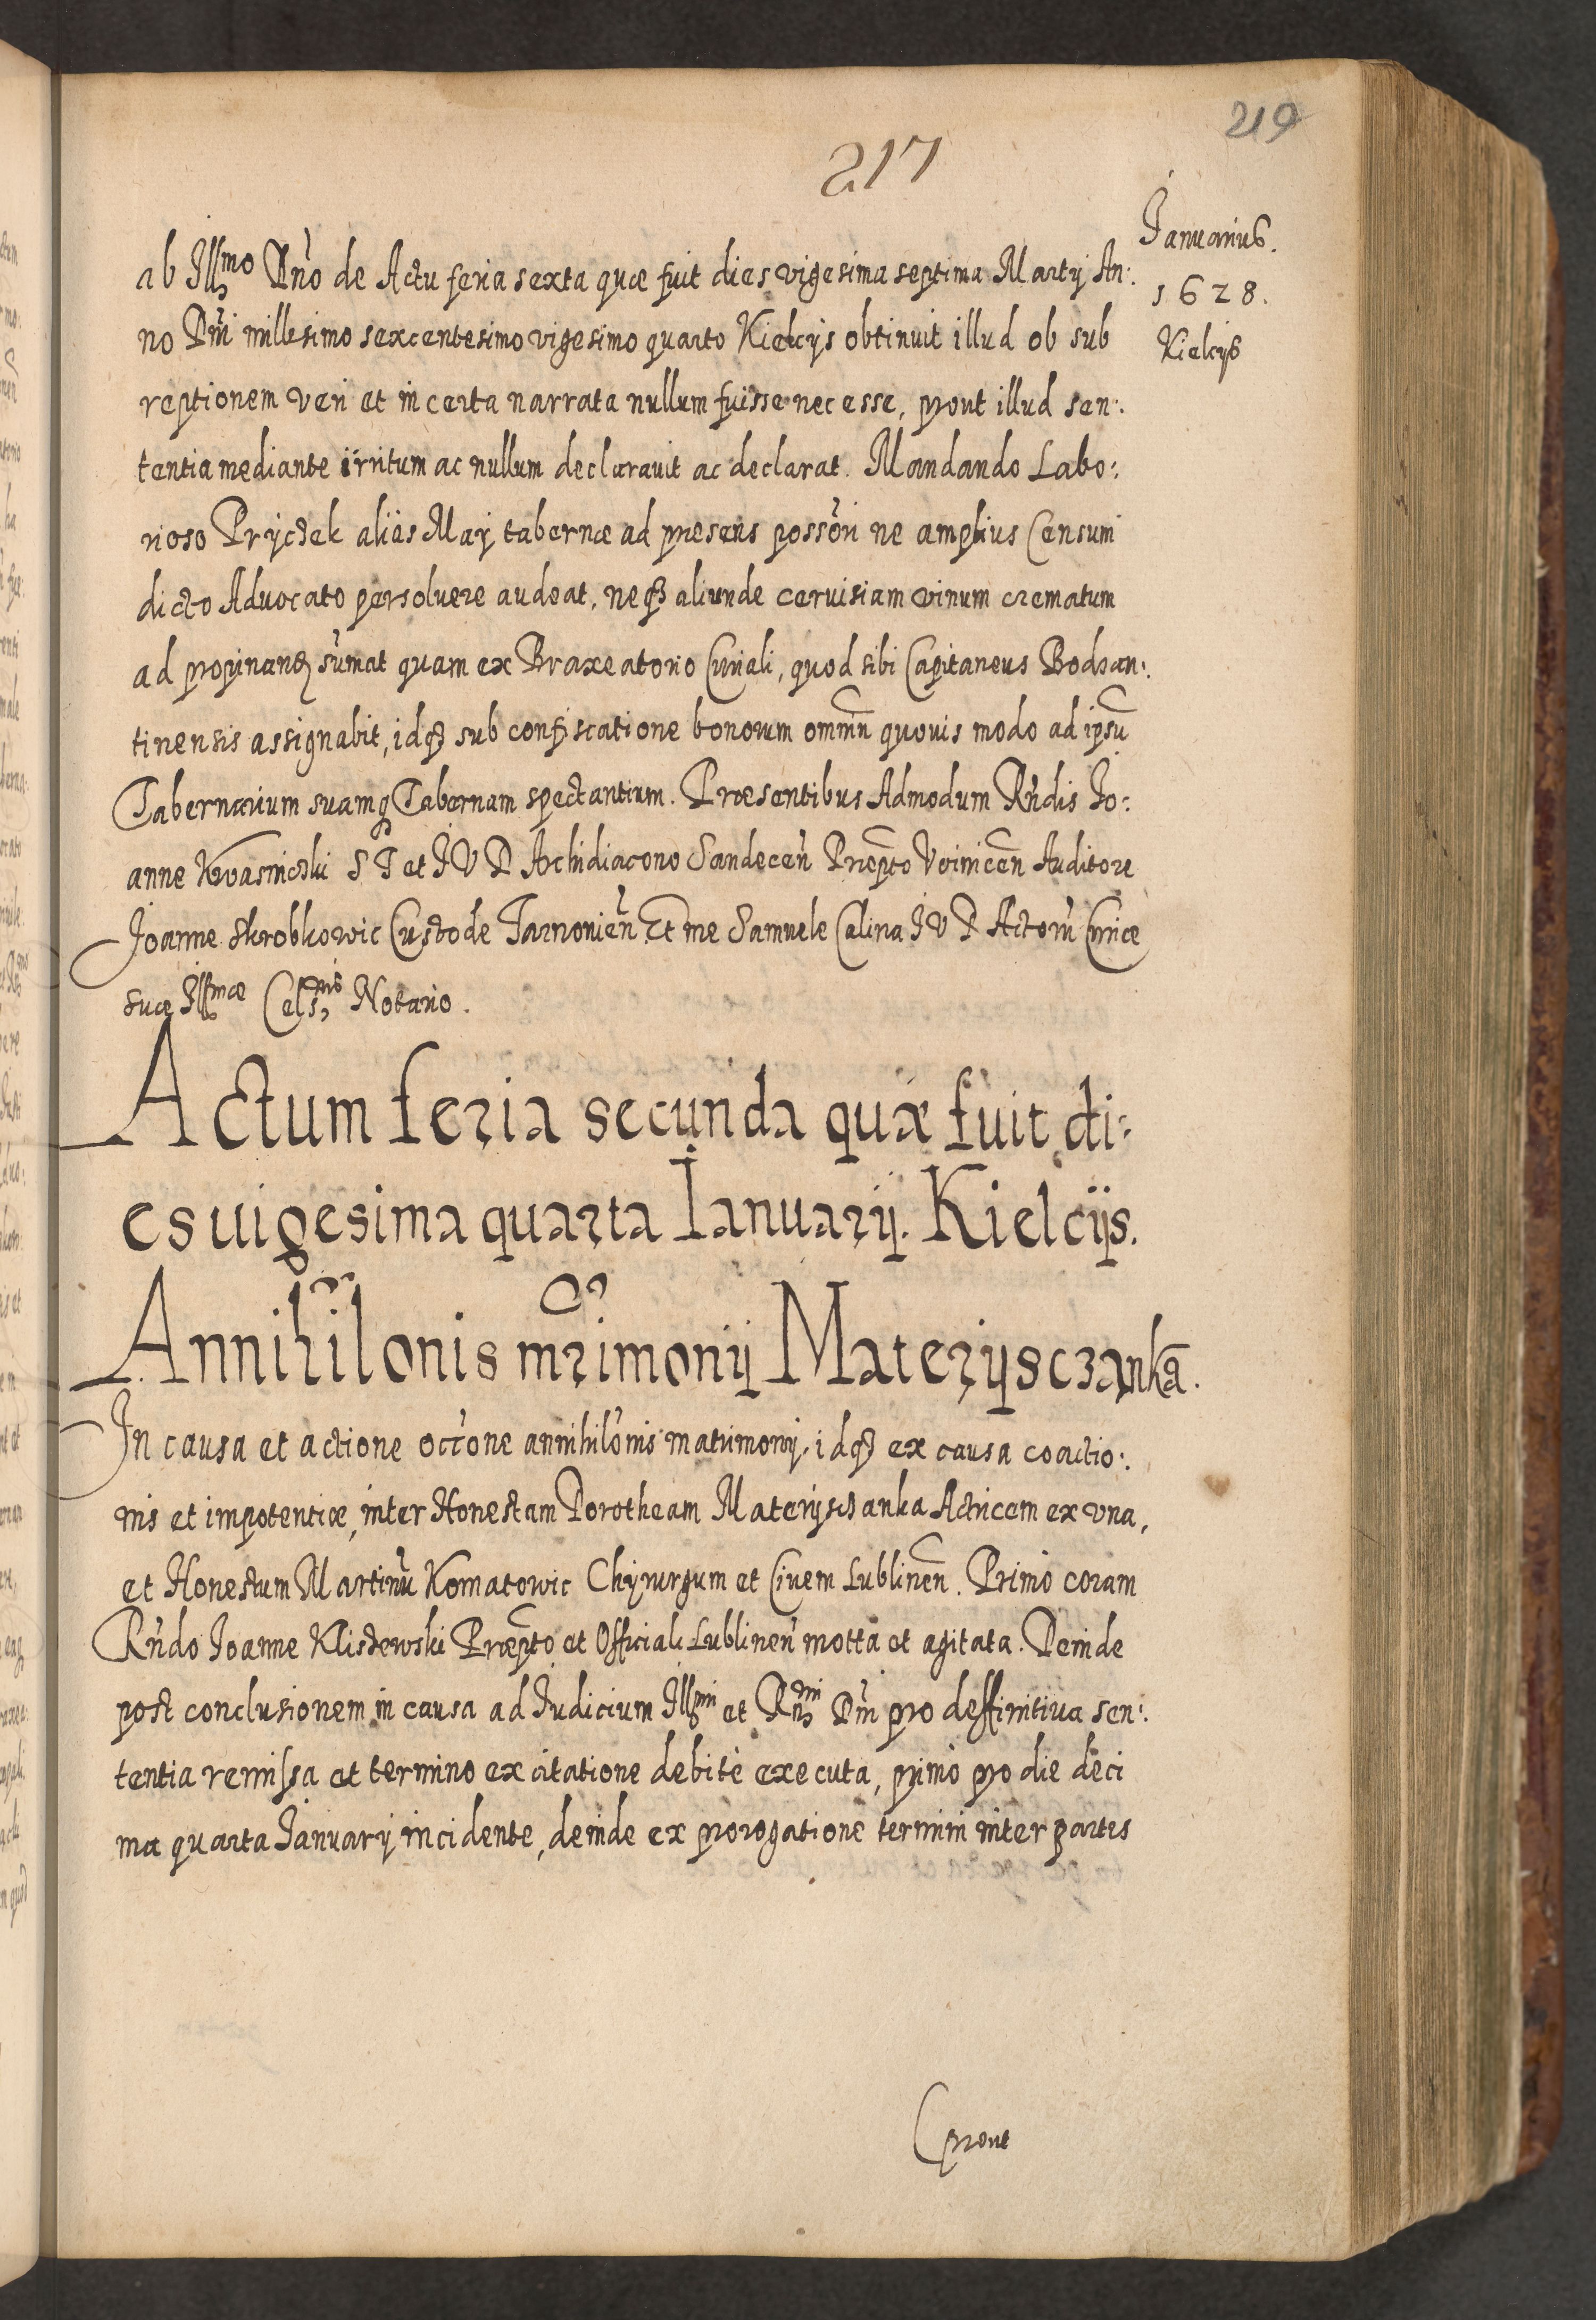 219
217
Januarius.
1628.
Kielcijs
ab Illmo Dno de Actu feria sexta quæ fuit dies vigesima septima Martij An:
no Dni millesimo sexcentesimo vigesimo quarto Kielcijs obtinuit illud ob sub
reptionem veri et incerta narrata nullum fuisse nec esse, prout illud sen:
tentia mediante irritum ac nullum declaravit ac declarat. Mandando Labo:
rioso alias May tabernæ ad presens possori ne amplius Censum
dicto Advocato persolvere audeat, neqꝫ aliunde cervisiam vinum crematum
ad propinandꝫ sumat quam ex Braxeatorio Curiali, quod sibi Capitaneus Bodzan:
tinensis assignabit, idqꝫ sub confiscatione bonorum omniu quovis modo ad ipsu
Tabernarium suamqꝫ Tabernam spectantium. Præsentibus Admodum Rndis Jo:
anne S T et J V D Archidiacono Sandecen Præpto Voinicen Auditore
Joanne Skrobkowic Custode Tarnovien Et me Samuele Calina J V D Actoru Curiæ
suæ Illmæ Celsnis Notario.
Actum feria secunda quæ fuit di:
es uigesima quarta Ianuarij. Kielcijs.
Annihilonis mrimonij Materijsczanka.
In causa et actione occone annihilonis matrimonij, idqꝫ ex causa coactio:
nis et impotentiæ, inter Honestam Dorotheam Materijsczanka Actricem ex vna,
et Honestum Martinu Kornatowic Chyrurgum et Civem Lublinen. Primo coram
Rndo Joanne Kliszewski Præpto et Officiali Lublinen motta et agitata. Deinde
post conclusionem in causa ad Judicium Illmi et Rndmi Dni pro deffinitiva sen:
tentia remissa et termino ex citatione debitè executa, primo pro die deci
ma quarta Januarij incidente, deinde ex prorogatione termini inter partes
prout